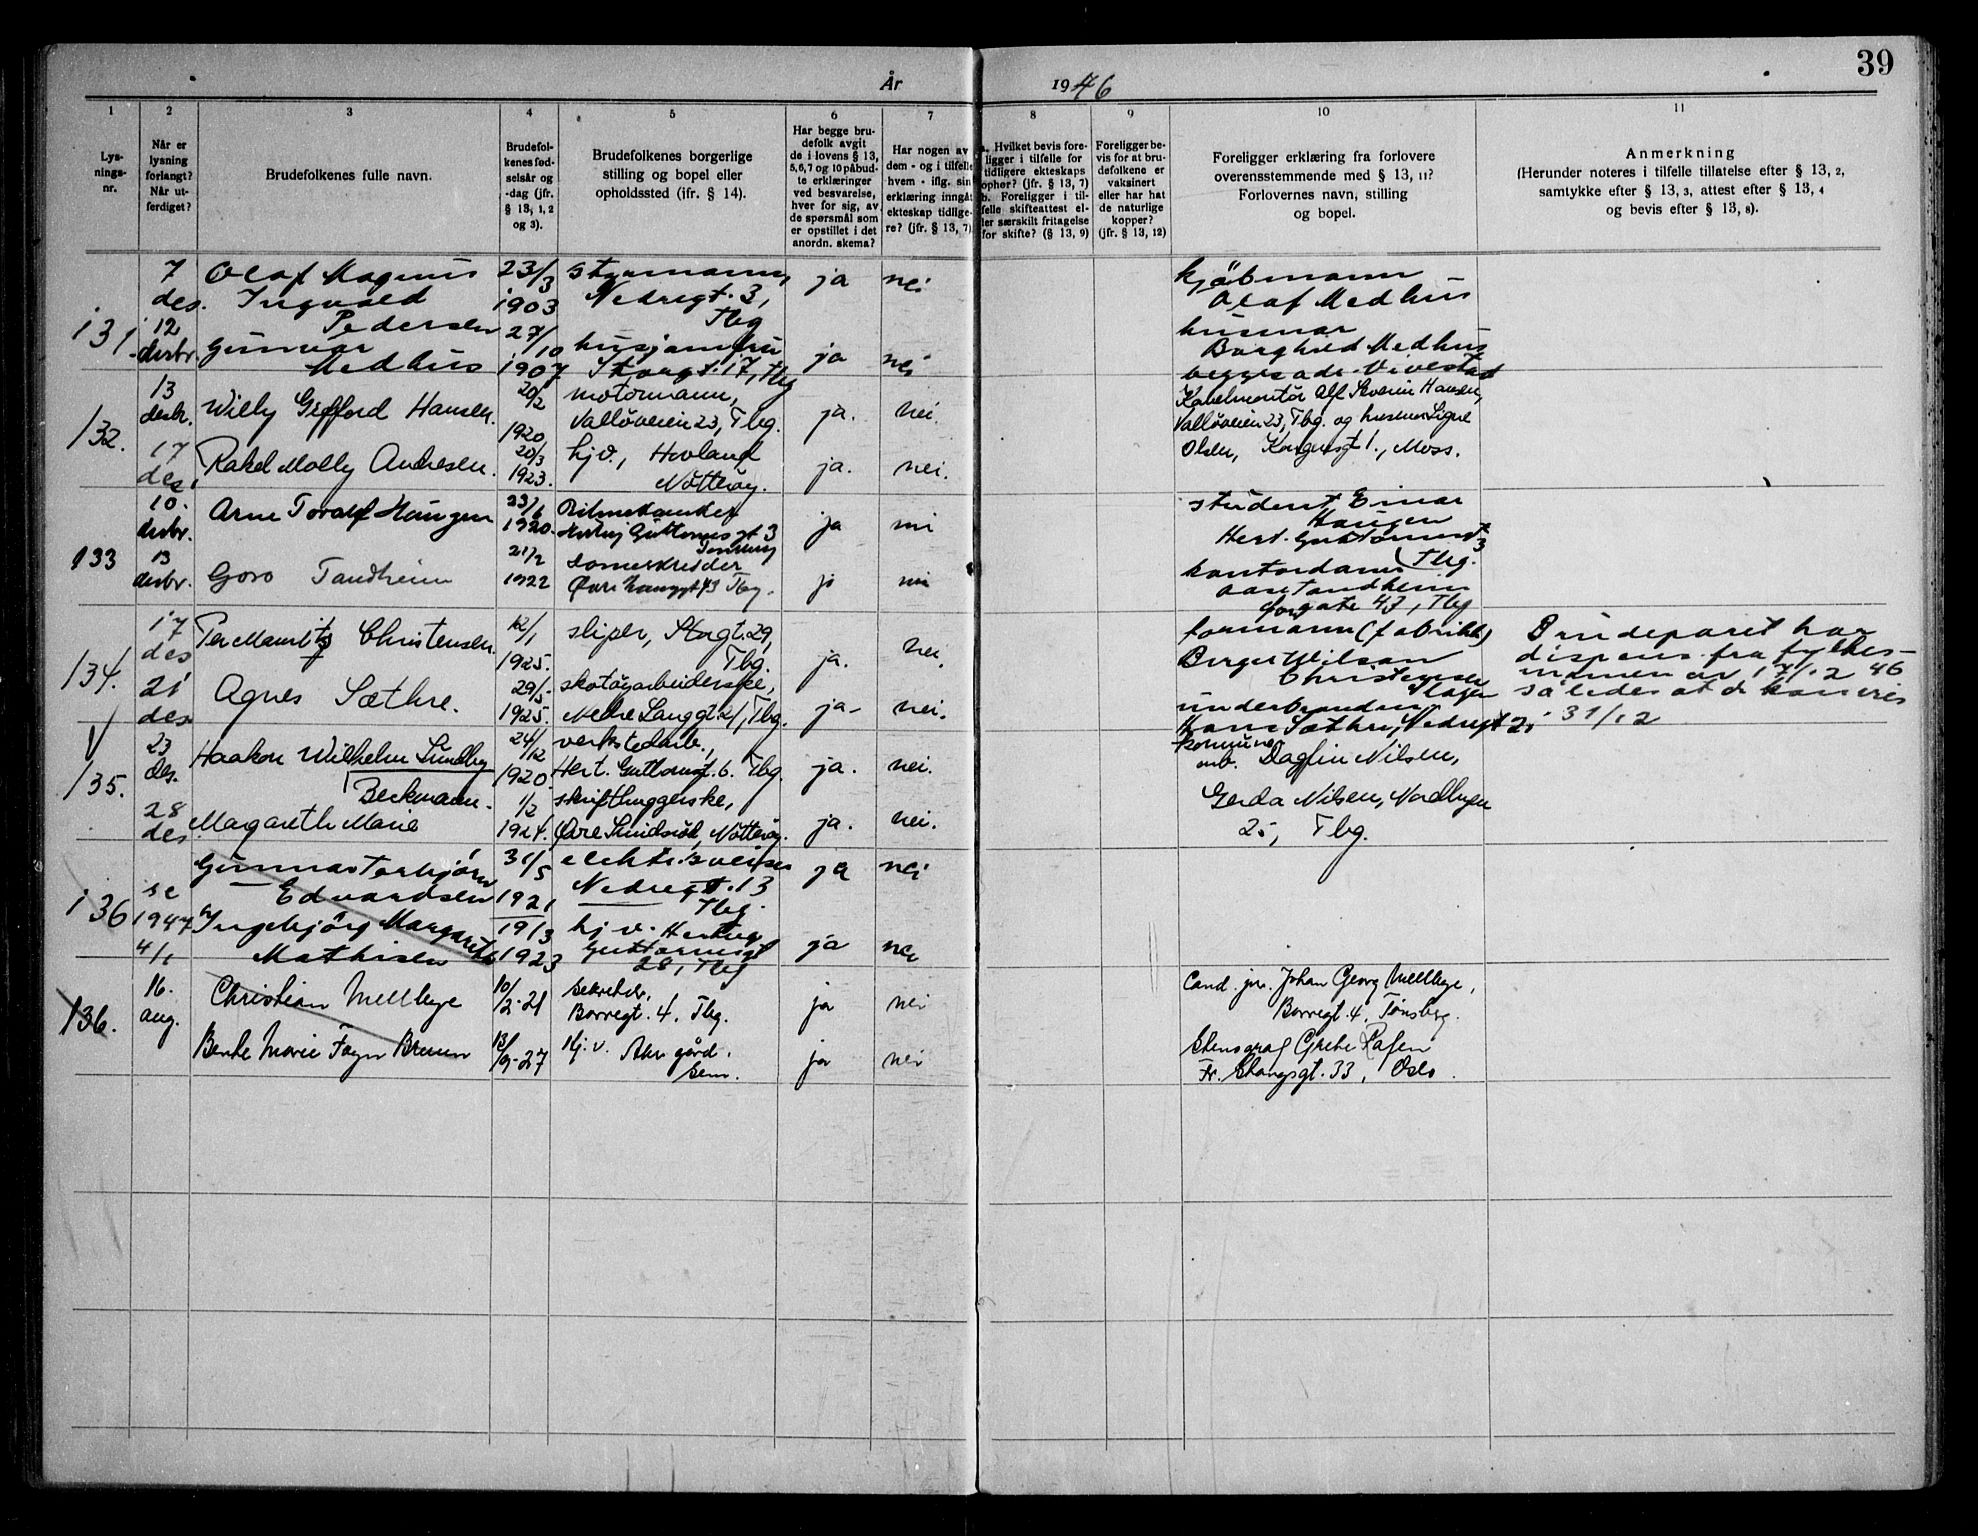 39
År 1946
1
2
3
4
5
6
7
8
9
10
11
Lys-
nings-
nr.
Når er
lysning
forlangt?
Når ut-
ferdiget?
Brudefolkenes fulle navn.
Brudefol-
kenes fød-
selsår og
-dag (jfr.
§ 13, 1, 2
og 3).
Brudefolkenes borgerlige
stilling og bopel eller
opholdssted (ifr. § 14).
Har begge bru-
defolk avgit
de i lovens § 13,
5, 6, 7 og 10 påbud-
te erklæringer
ved besvarelse,
hver for sig, av
de spørsmål som
er opstillet i det
anordn. skema?
Har nogen av
dem - og i tilfelle
hvem - iflg. sin
erklæring inngåt
ekteskap tidlige-
re? (jfr. § 13, 7)
a. Hvilket bevis fore-
ligger i tilfelle for
tidligere ekteskaps
ophør? (jfr. § 13, 7)
b. Foreligger i til-
felle skifteattest el-
ler særskilt fritagelse
for skifte? (§ 13, 9)
Foreligger be-
vis for at bru-
defolkene er
vaksinert
eller har hat
de naturlige
kopper?
(jfr. § 13, 12)
Foreligger erklæring fra forlovere
overensstemmende med § 13, 11?
Forlovernes navn, stilling
og bopel.
Anmerkning
(Herunder noteres i tilfelle tillatelse efter § 13, 2,
samtykke efter § 13, 3, attest efter § 13, 4
og bevis efter § 13, 8).
131.
7
des.
12
desbr.
Olaf Magnus
Ingvald
Pedersen
23/3
1903
styrmann,
Nedregt. 3,
Tbg
ja
nei
Gunvor
Medhus
27/10
1907
husjomfru
Storgt. 17, Tbg
ja
nei
kjöbmann
Olaf Medhus
husmor
Borghild Medhus
begges adr. Vivestad
132.
13
desbr.
17
des.
Willy Gifford Hansen.
20/2
1920
motormann,
Valløveien 23, Tbg.
ja.
nei.
Rakel Molly Andresen.
20/3
1923.
hjv., Hovland
Nøtterøy.
ja.
nei.
Kabelmontør Alf Severin Hansen,
Valløveien 23, Tbg. og husmor Signe
Olsen, Kongensgt 1., Moss.
133
10.
desbr.
13
desbr.
Arne Toralf Haugen
23/6
1920.
Hertug Guttormsgt 3
Tønsberg
ja
nei
Goro Tandheim
21/2
1922
Sømerskredder
Øvre Langgt 43 Tbg.
ja
nei
student Einar
Haugen
Hert. Guttormsgt 3
Tbg.
kontordame
Aase Tandheim
43, Tbg
134.
17
des
21
des
Per Mauritz Christensen.
12/1
1925.
sliper, Stogt. 29,
Tbg.
ja.
nei.
Agnes Sæthre.
29/5
1925.
skotøyarbeiderske,
Nedre Langgt. 21, Tbg.
ja-
nei.
formann (fabrikk)
Birger Wilson
Christensen
Slagen
underbrandm.
Hans Sæthre, Nedregt 2.
Brudeparet har
dispens. fra fylkes-
mannen av 17/12 46
således at de kan vies
31/12
V
135.
23
des.
28
des.
Haakon Wilhelm Sundby
Beckmann.
24/12
1920.
verkstedarb.,
Hert. Guttormsgt. 6. Tbg.
ja.
nei.
Margareth Marie
1/2
1924.
skrifthuggerske,
Øvre Smidsrød, Nøtterøy.
ja.
nei.
kommune-
arb. Dagfin Nilsen,
Gerda Nilsen, Nordbyen
25, Tbg.
136
se
1947
4/1
Gunnar Torbjørn
Edvardsen
31/5
1921
elektr. sveiser
Nedregt. 13
Tbg.
ja
nei
Ingebjørg Margarete
Mathisen
19/3
1923
hj v. Hertug
Guttormsgt
28, Tbg
ja
nei
136.
16.
aug.
Christian Mellbye
10/2-21
sekretær,
Borregt. 4, Tbg.
ja
nei
Bente Marie Føyn Bruun
13/9-27
Hj. v. Aker gård.
Sem.
ja
nei
Cand. jur. Johan Georg Mellbye,
Borregt. 4, Tønsberg.
Stenograf Grete Rafen
Fr. Stangsgt. 33, Oslo.